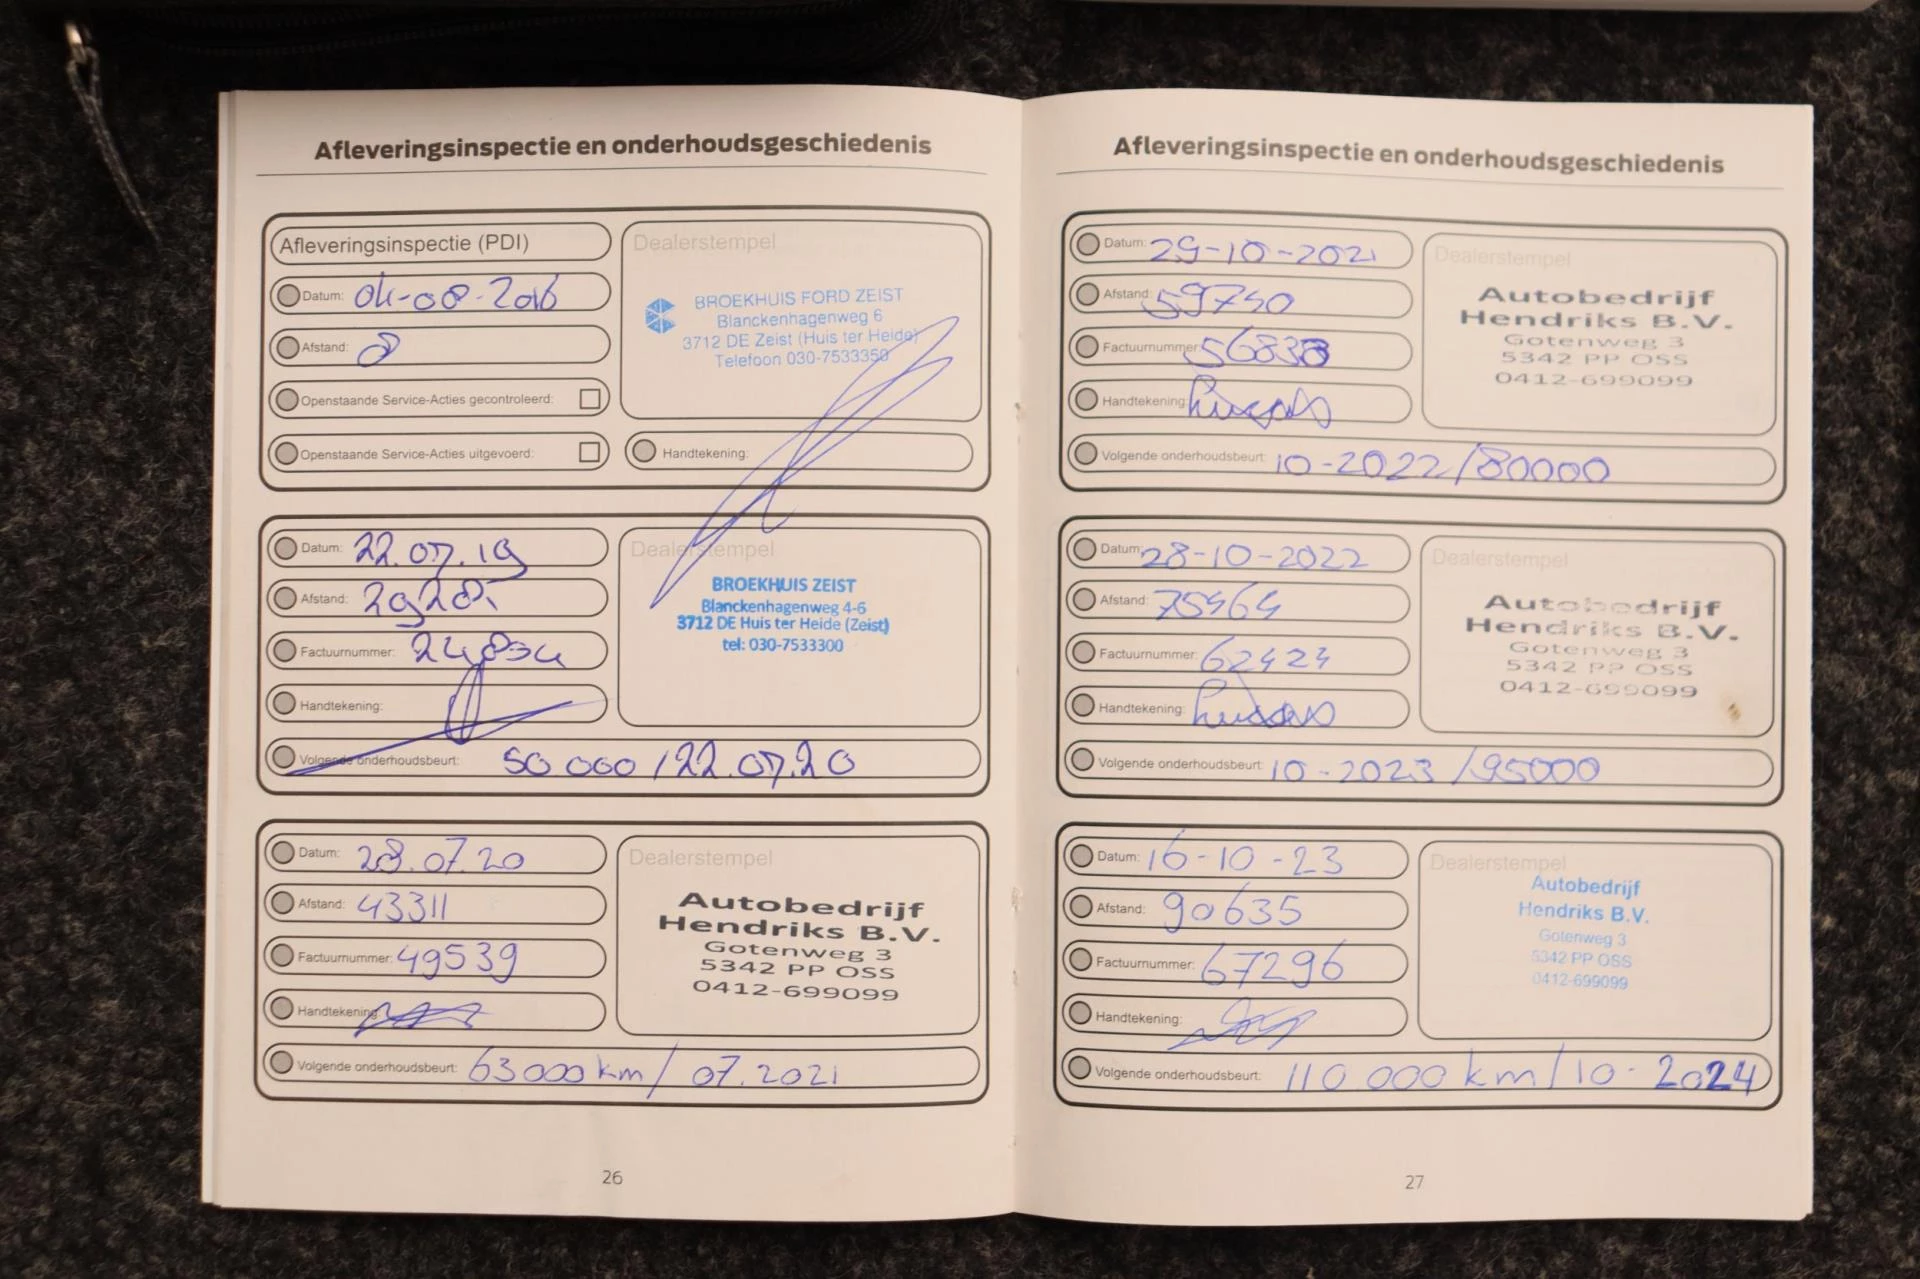 Afleveringsinspectie en onderhoudsgeschiedenis
Afleveringsinspectie (PDI)
Datum: 04-08-2016
Afstand: 8
Openstaande Service-Acties gecontroleerd:
Openstaande Service-Acties uitgevoerd:
Dealerstempel
BROEKHUIS FORD ZEIST
Blanckenhagenweg 6
3712 DE Zeist (Huis ter Heide)
Telefoon 030-7533350
Handtekening:
Datum: 22.07.19
Afstand:
Factuurnummer:
Handtekening:
Volgende onderhoudsbeurt: 50.000 / 22.07.20
Dealerstempel
BROEKHUIS ZEIST
Blanckenhagenweg 4-6
3712 DE Huis ter Heide (Zeist)
tel: 030-7533300
Datum: 28.07.20
Afstand: 43311
Factuurnummer: 49539
Handtekening:
Volgende onderhoudsbeurt: 63000 km / 07.2021
Dealerstempel
Autobedrijf
Hendriks B.V.
Gotenweg 3
5342 PP OSS
0412-699099
26
Afleveringsinspectie en onderhoudsgeschiedenis
Datum: 29-10-2021
Afstand: 59740
Factuurnummer: 56838
Handtekening:
Volgende onderhoudsbeurt: 10-2022/80000
Dealerstempel
Autobedrijf
Hendriks B.V.
Gotenweg 3
5342 PP OSS
0412-699099
Datum: 28-10-2022
Afstand: 75464
Factuurnummer: 62424
Handtekening:
Volgende onderhoudsbeurt: 10-2023/95000
Dealerstempel
Autobedrijf
Hendriks B.V.
Gotenweg 3
5342 PP OSS
0412-699099
Datum: 16-10-23
Afstand: 90635
Factuurnummer: 67296
Handtekening:
Volgende onderhoudsbeurt: 110 000 km/10-2024
Dealerstempel
Autobedrijf
Hendriks B.V.
Gotenweg 3
5342 PP OSS
0412-699099
27